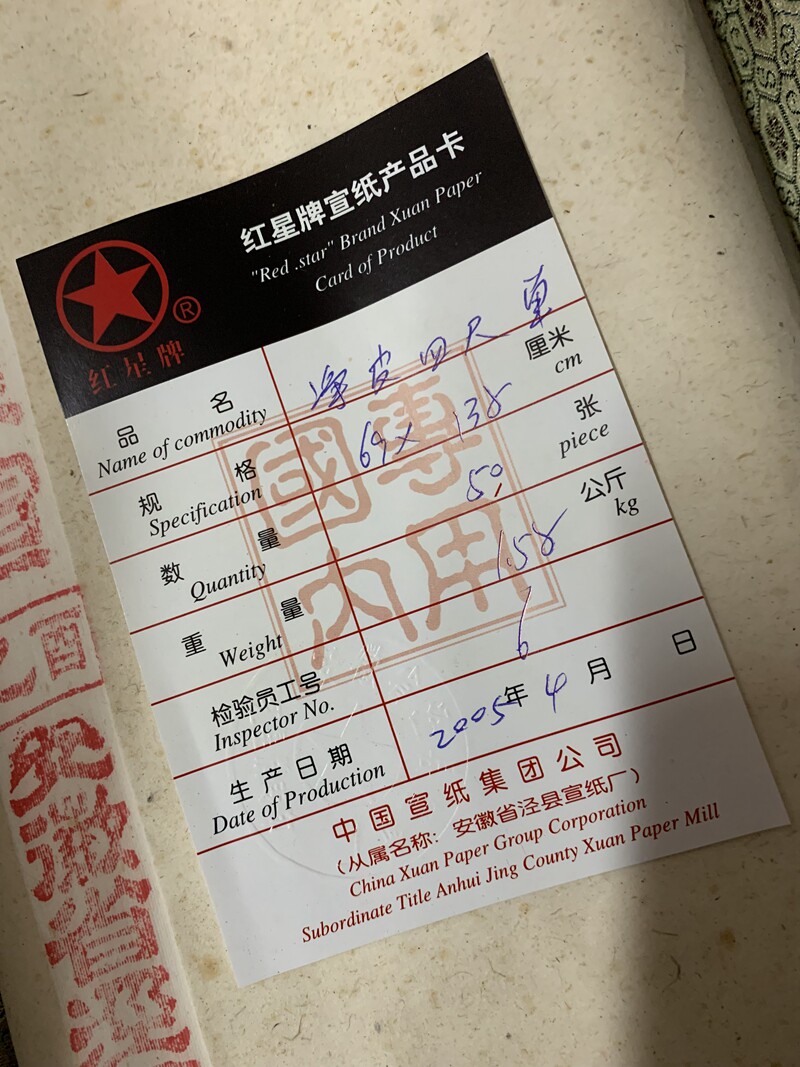 红星牌宣纸产品卡
"Red .star" Brand Xuan Paper
Card of Product
®
红星牌
品名 皮四尺单
Name of commodity
规格 69×138 厘米
Specification cm
数量 50 张
Quantity piece
重量 1.58 公斤
Weight kg
检验员工号 6
Inspector No.
生产日期 2005年4月 日
Date of Production
專用
國内
中国宣纸集团公司
(从属名称：安徽省泾县宣纸厂)
China Xuan Paper Group Corporation
Subordinate Title Anhui Jing County Xuan Paper Mill
安徽省涇